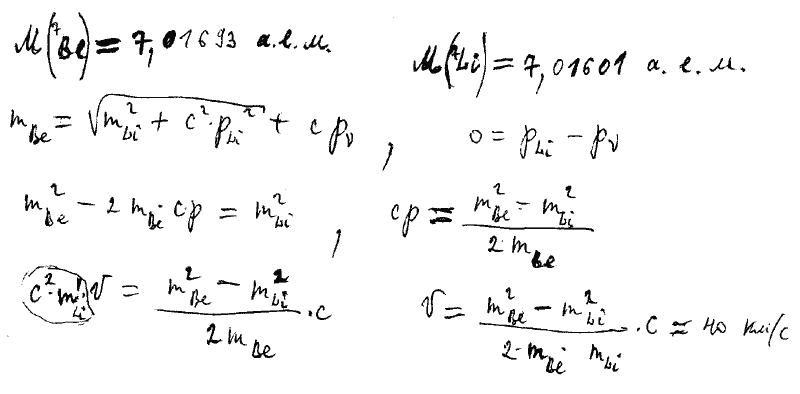 M(⁷Be) = 7,01693 а.е.м. M(⁷Li) = 7,01601 а.е.м.
m_Be = √(m²_Li + c²·p_Li²) + c p_ν , 0 = p_Li − p_ν
m²_Be − 2 m_Be cp = m²_Li , cp = (m²_Be − m²_Li) / (2 m_Be)
c²·m_Li v = (m²_Be − m²_Li) / (2 m_Be) · c v = (m²_Be − m²_Li) / (2·m_Be m_Li) · c ≈ 40 км/с